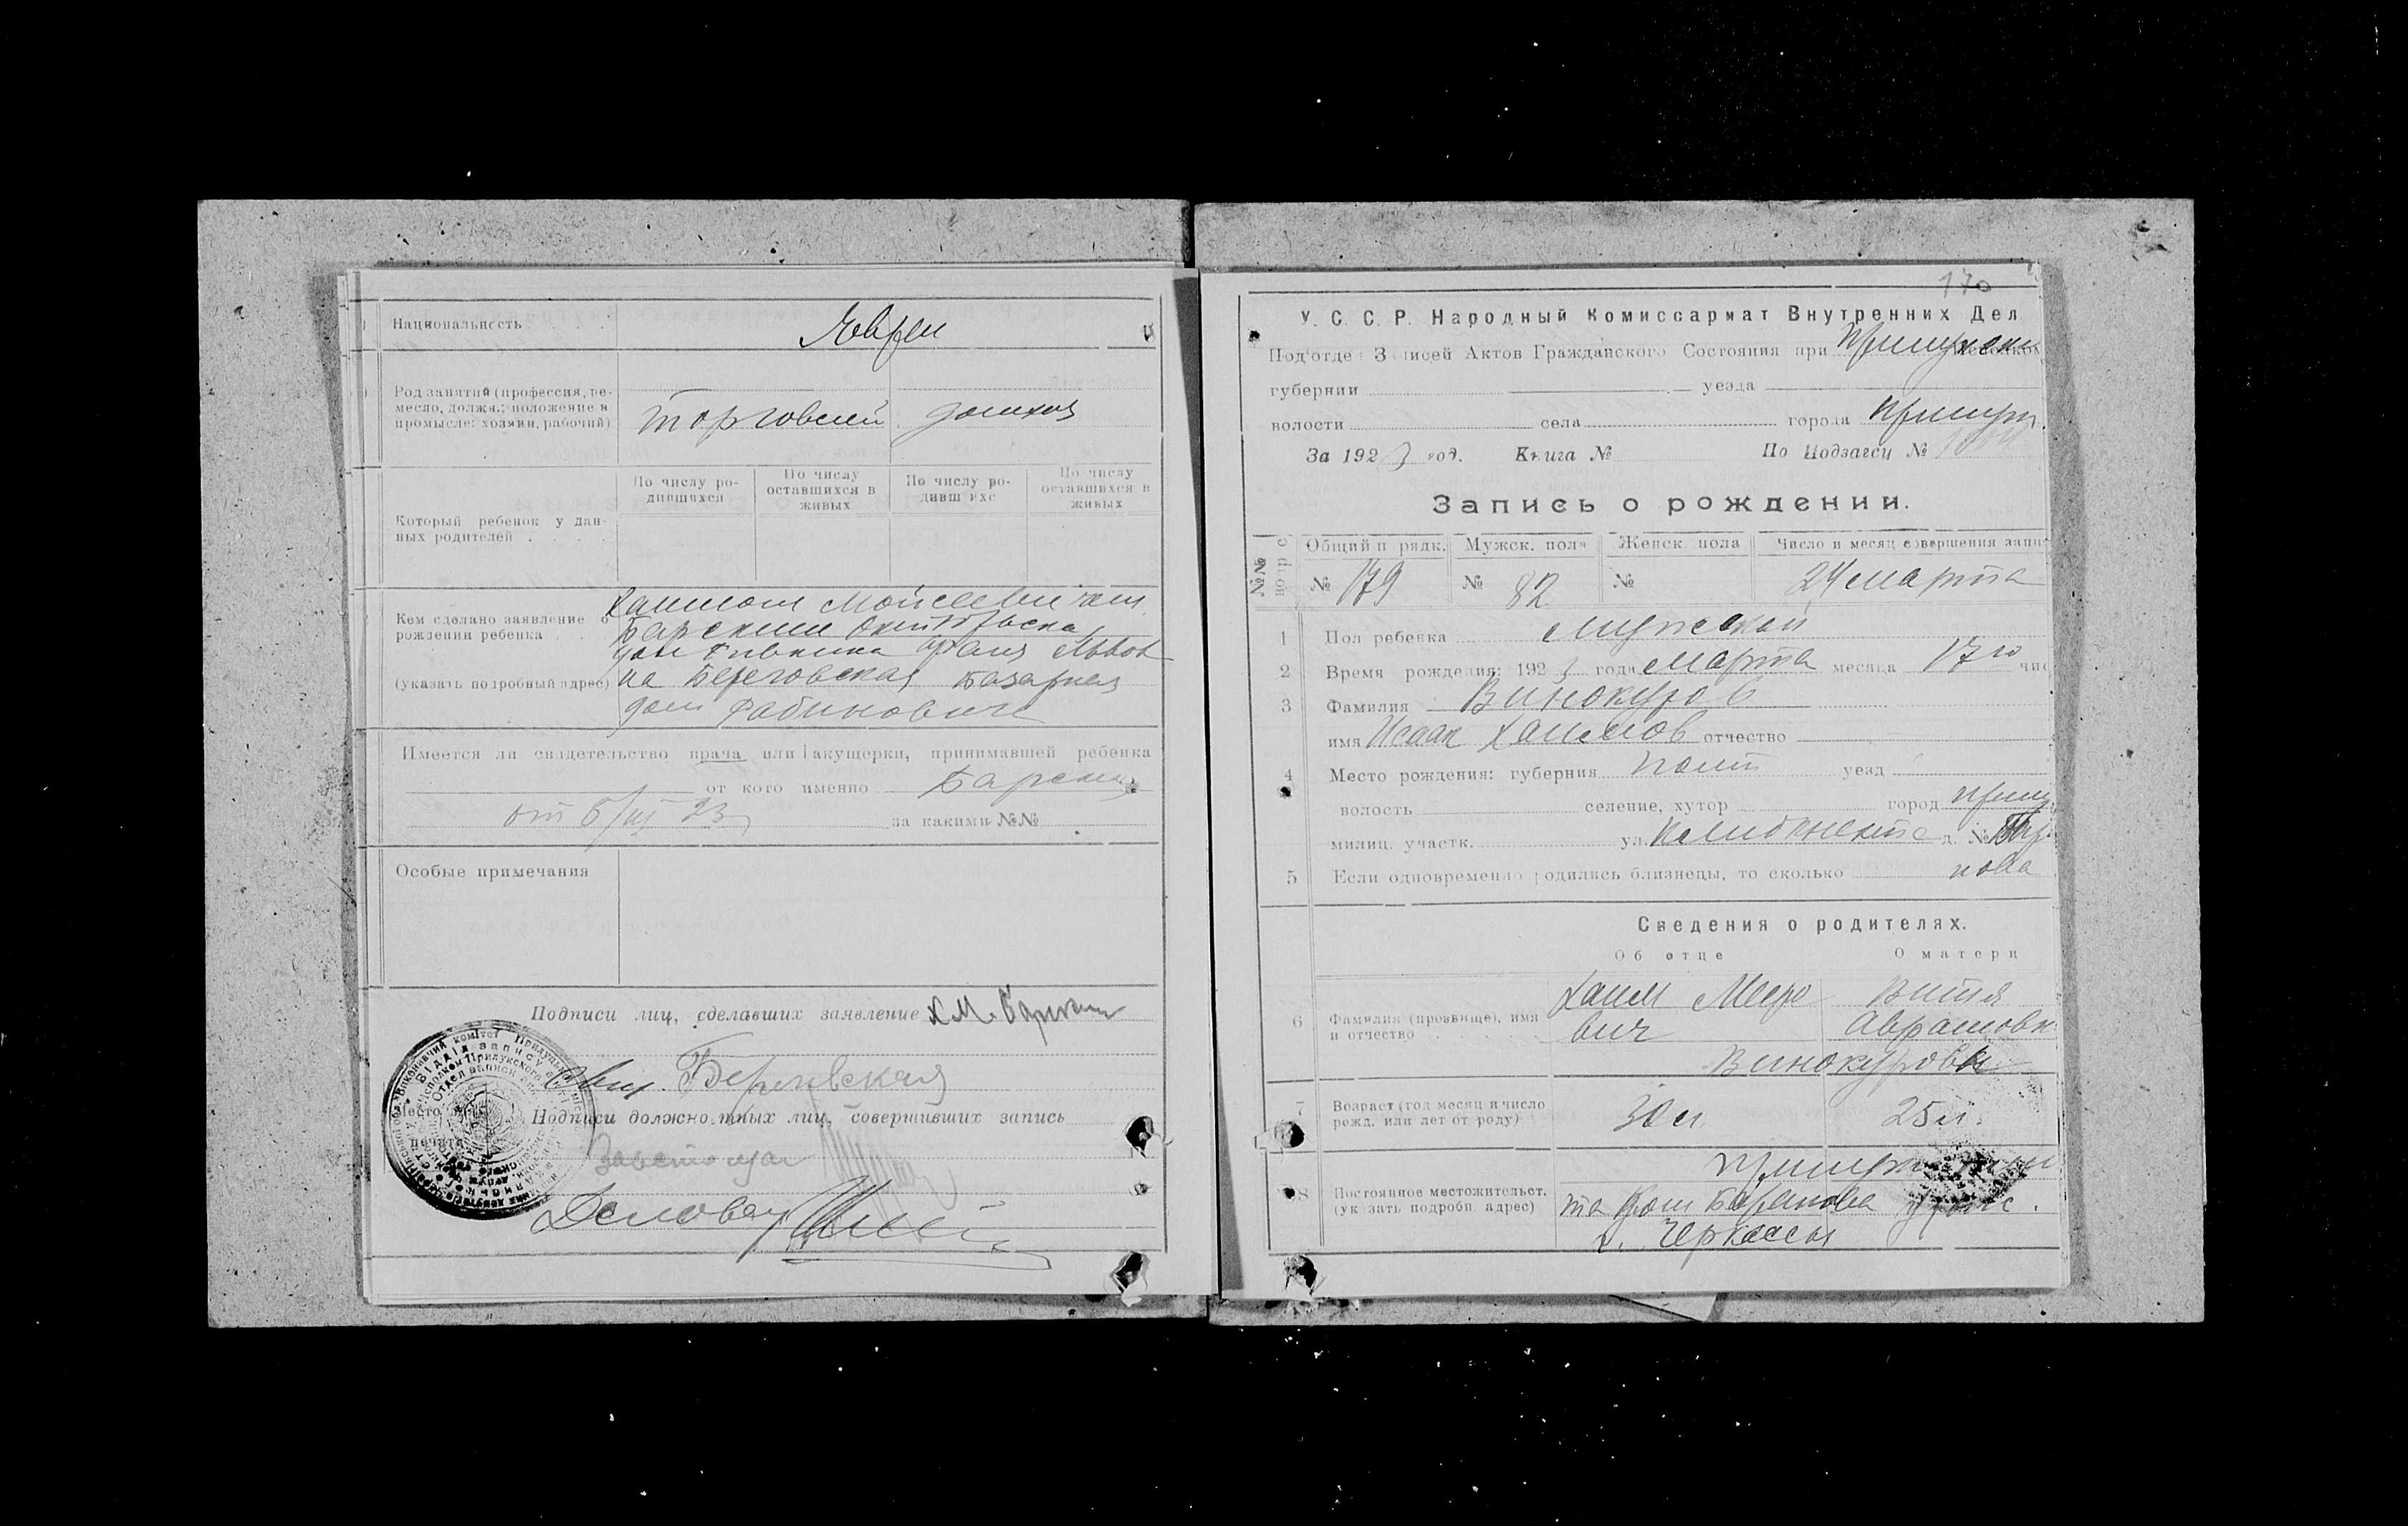 Национальность . . . Евреи
Род занятий (профессия, ре-
месло, должн.: положение в
промысле: хозяин, рабочий)
торговый домхоз
По числу ро-
дившихся
По числу
оставшихся в
живых
По числу ро-
дивш ихс
По числу
оставшихся в
живых
Который ребенок у дан-
ных родителей . . . .
Кем сделано заявление о
рождении ребенка . .
(указать подробный адрес)
Хаимом Мойсеевичем
Барским Октябрьска
дом Ривкина Львов
на Береговская Базарная
дом Рабиновича
Имеется ли свидетельство врача или акушерки, принимавшей ребенка
от кого именно Барский
от 5/III 23 за какими №№
Особые примечания
Подписи лиц, сделавших заявление Х М. Барский
Береговская
Место
печати
Подписи должностных лиц, совершивших запись
Деловод
170
У. С. С. Р. Народный Комиссариат Внутренних Дел
Под'отде Записей Актов Гражданского Состояния при Прилуцком
губернии уезда
волости села города Прилук
За 1923 год. Книга № По Подзагсу №
Запись о рождении.
№№
Общий п рядк. Мужск. пола Женск. пола Число и месяц совершения запи
№ 179 № 82 № 24 марта
1 Пол ребенка мужской
2 Время рождения: 1923 года Марта месяца 17го чис
3 Фамилия Винокуров
имя Исаак Хаимов отчество
4 Место рождения: губерния Полт уезд
волость селение, хутор город Прилу
милиц. участк. ул. д. №
5 Если одновременно родились близнецы, то сколько
Сведения о родителях.
Об отце О матери
6 Фамилия (прозвище), имя
и отчество . . . . . .
Хаим Мееро
вич
Витля
Аврамовн
Винокуровы
7 Возраст (год месяц и число
рожд. или лет от роду)
30 л. 25 л.
8 Постоянное местожительст.
(указать подробн. адрес)
та дом Баранова
г. Черкассы